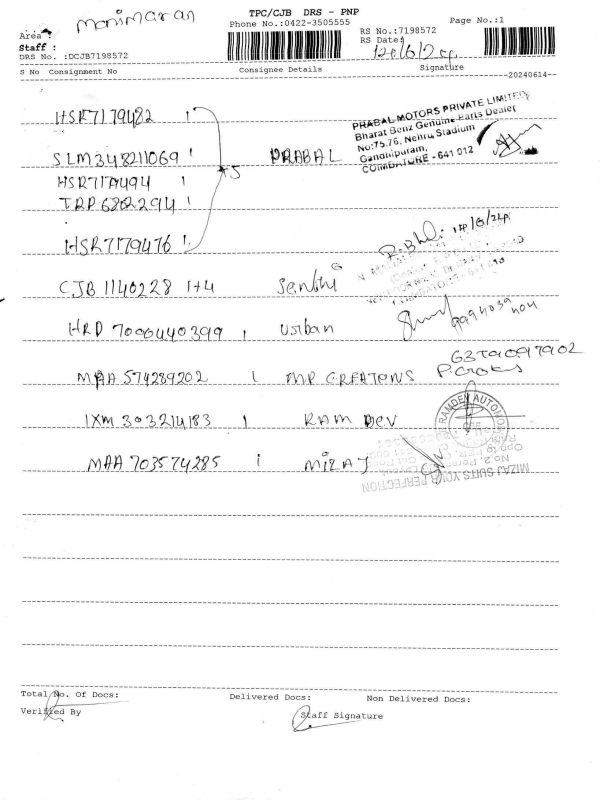 manimaran
TPC/CJB DRS - PNP
Phone No.:0422-3505555
Page No.:1
Area
RS No.:7198572
Staff :
RS Date:
DRS No. :DCJB7198572
S No Consignment No Consignee Details Signature
--20240614--
HSR7179482 1
SLM348211069 1 PRABAL
HSR717A494 1
+5
TRP6802294 1
HSR7179476 1
PRABAL MOTORS PRIVATE LIMITED
Bharat Benz Genuine Parts Dealer
No:75,76, Nehru Stadium
Gandhipuram,
COIMBATORE - 641 012
14/6/24
CJB 1140228 1+4 Senthi
HRD 7006440399 1 Urban
MAA 574289202 1 MP CREATONS
IXM 303214183 1 RAM DEV
RAMDEV AUTOMO
MAA 703574285 1 MIZAJ
MIZAJ SUITS YOUR PERFECTION
Total No. Of Docs: Delivered Docs: Non Delivered Docs:
Verified By Staff Signature